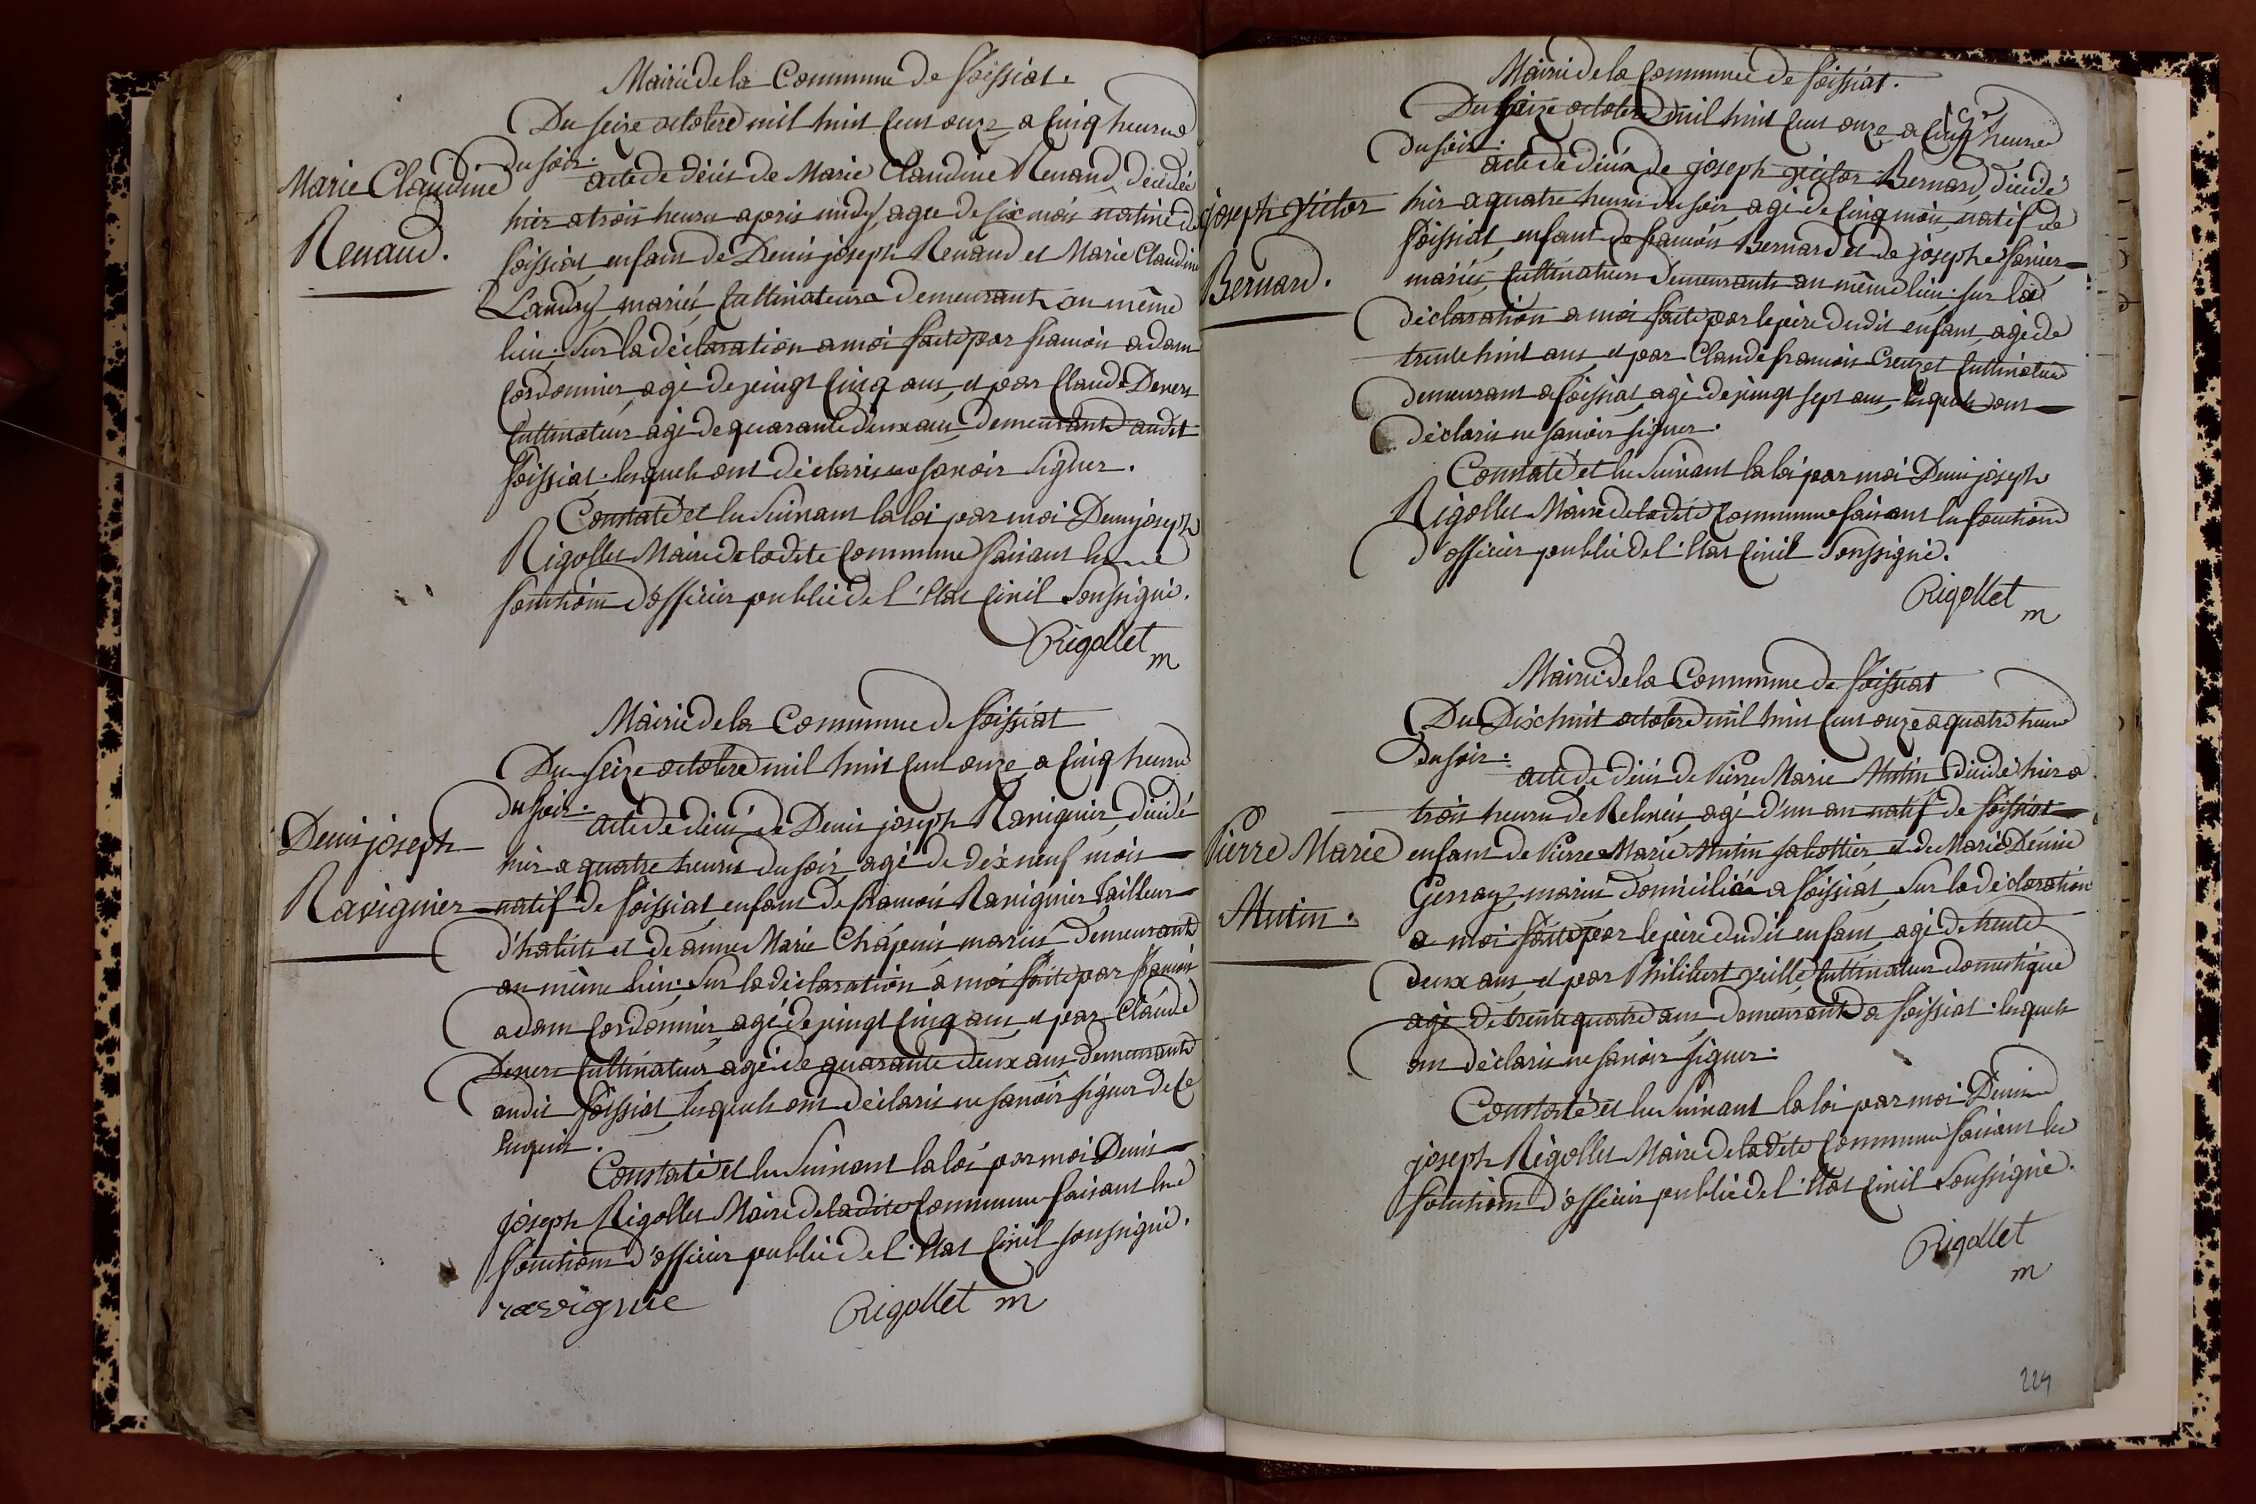 Mairie de la Commune de foissiat.
Du seize octobre mil huit cent onze a cinq heures
du soir.
acte de décés de Marie Claudine Renaud, décédée
Marie Claudine
hier a trois heures apris midy, agee de six mois native de
Renaud.
foissiat, enfant de Denis joseph Renaud et Marie Claudine
Landry, mariés, cultivateurs demeurants au même
lieu: sur la déclaration a moi faite par francois adam
Cordonnier, agé de vingt cinq ans, et par Claude Devers
cultivateur agé de quarante deux ans, demeurants audit
foissiat. lesquels ont déclarés ne savoir signer.
Constaté et lu suivant la loi par moi Denis joseph
Rigollet Maire de ladite Commune faisant les
fonctions d'officier public de l'Etat Civil soussigné.
Rigollet
m
Mairie de la Commune de foissiat
Du seize octobre mil huit cent onze, a cinq heures
du soir.
acte de décés de Denis joseph Ravignier, décédé
Denis joseph
hier a quatre heures du soir, agé de dix neuf mois
Ravignier
natif de foissiat, enfant de francois Ravignier tailleur
d'habits et de anne Marie Chapuis mariés demeurants
au même lieu: sur la déclaration a moi faite par francois
adam Cordonnier, agé de vingt cinq ans, et par Claude
Devers cultivateur, agé de quarante deux ans, demeurants
audit foissiat, lesquels ont déclarés ne savoir signer de ce
enquis.
Constaté et lu suivant la loi par moi Denis
joseph Rigollet Maire de ladite Commune faisant les
fonctions d'officier public de l'Etat Civil soussigné.
ravignie
Rigollet m
Mairie de la Commune de foissiat.
Du seize octobre mil huit cent onze a cinq heures
du soir.
acte de décés de joseph victor Bernard, décédé
joseph victor
hier a quatre heures du soir, agé de cinq mois, natif de
foissiat, enfant de francois Bernard et de josephe
Bernard.
mariés, cultivateurs demeurants au même lieu: sur la
déclaration a moi faite par le pere dudit enfant, agé de
trente huit ans, et par Claude francois Creuzet cultivateur
demeurant a foissiat, agé de vingt sept ans, lesquels ont
déclarés ne savoir signer.
Constaté et lu suivant la loi par moi Denis joseph
Rigollet Maire de ladite Commune faisant les fonctions
d'officier public de l'Etat Civil soussigné.
Rigollet
m
Mairie de la Commune de foissiat
Du Dixhuit octobre mil huit cent onze a quatre heures
du soir.
acte de décés de Pierre Marie Mutin décédé hier a
trois heures de Relevée, agé d'un an natif de foissiat
Pierre Marie
enfant de Pierre Marie Mutin sabottier et de Marie Denise
Mutin.
Gerray mariés domiciliés a foissiat, sur la déclaration
a moi faite par le pere dudit enfant, agé de trente
deux ans, et par Philibert cultivateur domestique
agé de trente quatre ans demeurants a foissiat. lesquels
ont déclarés ne savoir signer.
Constaté et lu suivant la loi par moi Denis
joseph Rigollet Maire de ladite Commune faisant les
fonctions d'officier public de l'Etat Civil soussigné.
Rigollet
m
224